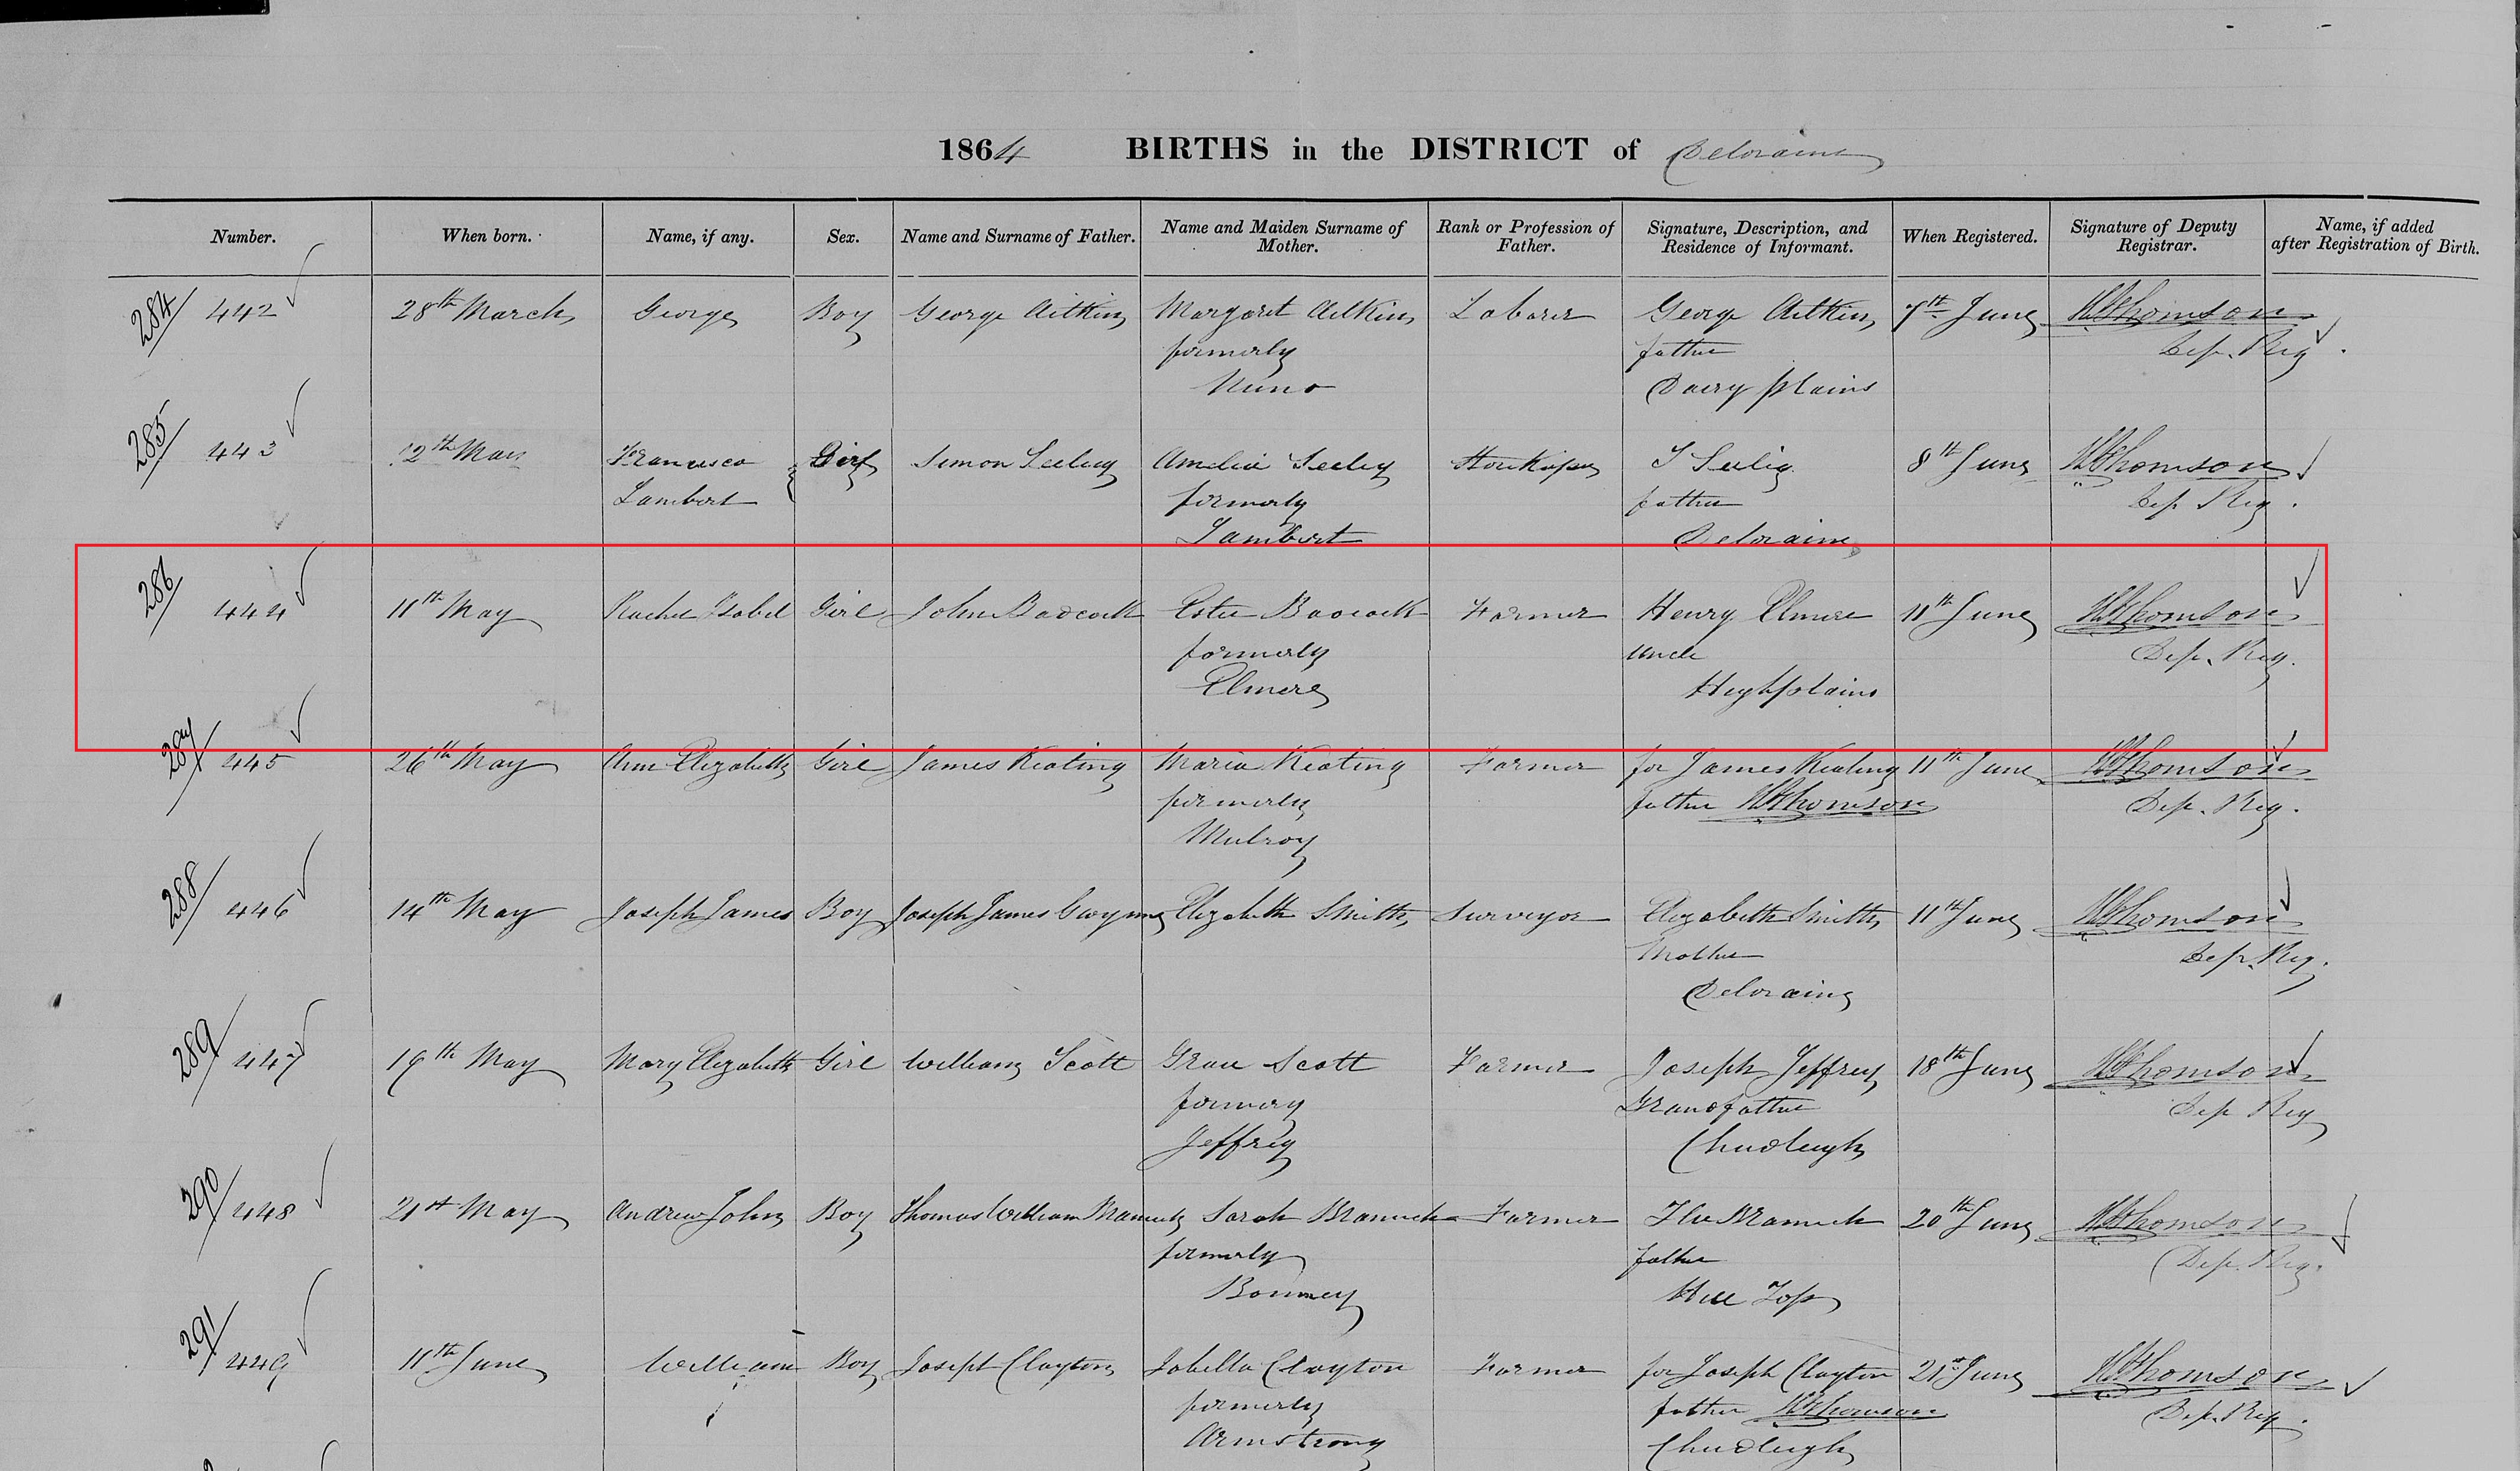 1864 BIRTHS in the DISTRICT of Deloraine
Number. When born. Name, if any. Sex. Name and Surname of Father. Name and Maiden Surname of Mother. Rank or Profession of Father. Signature, Description, and Residence of Informant. When Registered. Signature of Deputy Registrar. Name, if added after Registration of Birth.
284/ 442 28th March George Boy George Aitkin Margaret Aitkin Laborer George Aitkin 7th June WThomson
formerly father Dep. Reg
Dairy plains
285/ 443 12th May Francisca Girl Simon Seelig Amelia Seelig Storekeeper S Seelig 8th June WThomson
Lambert formerly father Dep Reg.
Lambert Deloraine
286/ 444 11th May Rachel Isobel Girl John Badcock Badcock Farmer Henry Elmere 11th June WThomson
formerly uncle Dep. Reg.
Elmere Highplains
287/ 445 26th May Ann Elizabeth Girl James Keating Maria Keating Farmer for James Keating 11th June WThomson
formerly father WThomson Dep. Reg.
Mulroy
288/ 446 14th May Joseph James Boy Joseph James Gwynne Elizabeth Smith Surveyor Elizabeth Smith 11th June WThomson
Mother Dep. Reg.
Deloraine
289/ 447 19th May Mary Elizabeth Girl William Scott Grace Scott Farmer Joseph Jeffrey 18th June WThomson
formery Grandfather Dep Reg
Jeffrey Chudleigh
290/ 448 21st May Andrew John Boy Thomas William Sarah Farmer 20th June WThomson
formerly father Dep. Reg.
Bonney Hill Top
291/ 449 11th June William Boy Joseph Clayton Isabella Clayton Farmer for Joseph Clayton 21st June WThomson
formerly father WThomson Dep. Reg.
Armstrong Chudleigh